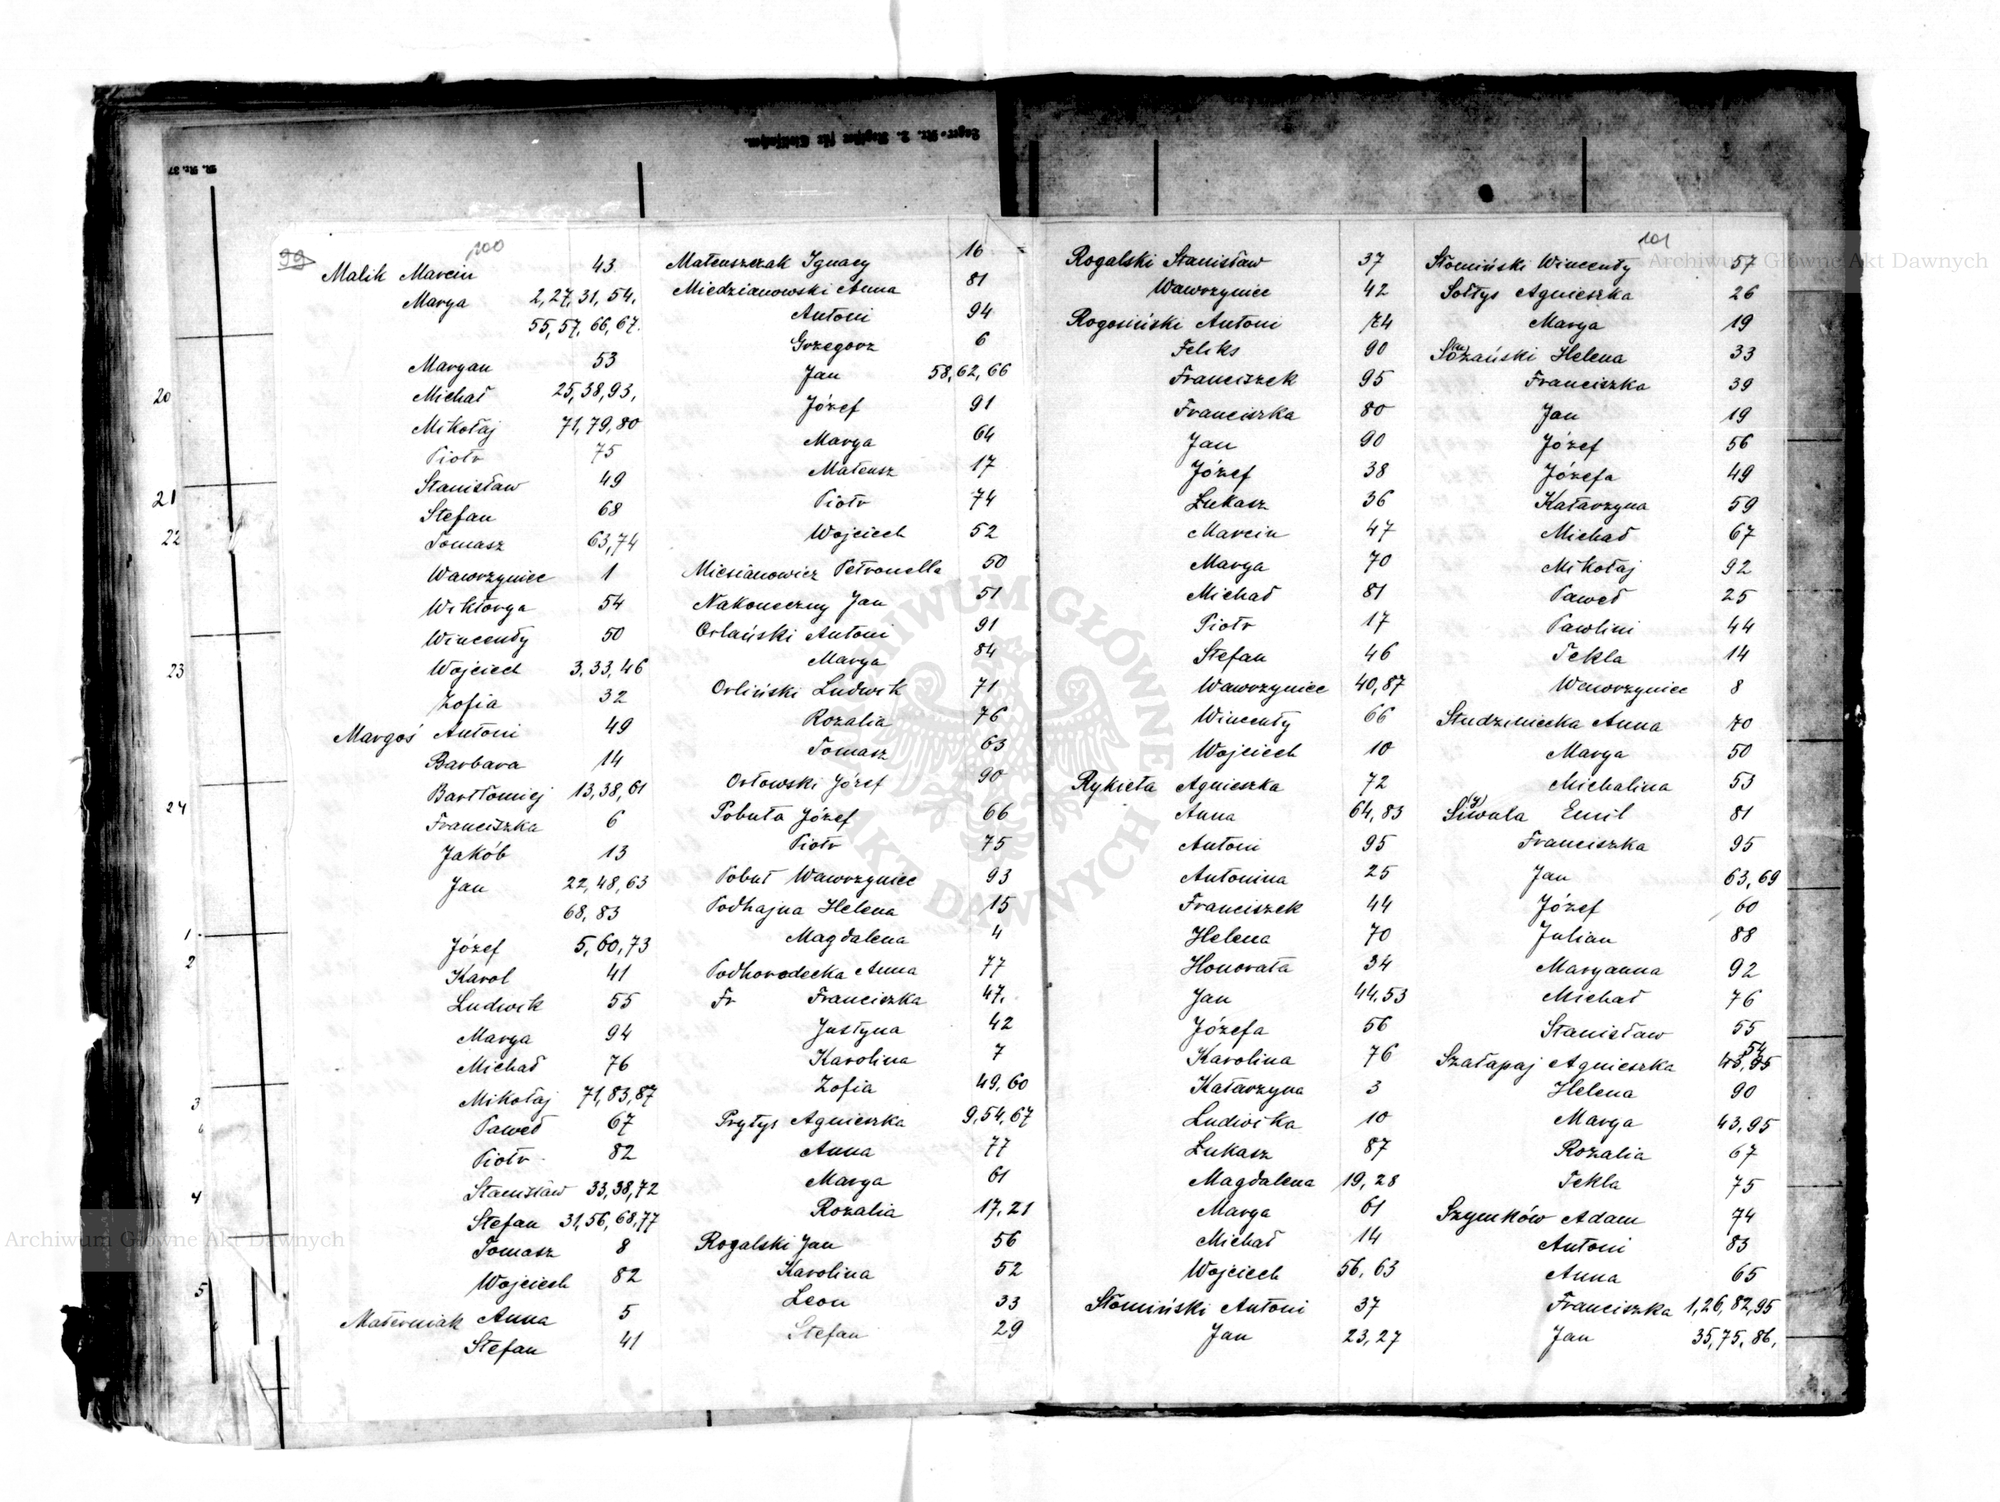 99 100
Malik Marcin 43
Marya 2,27,31,54,
55,57,66,67.
Maryan 53
Michał 25,38,93,
Mikołaj 71,79,80
Piotr 75
Stanisław 49
Stefan 68
Tomasz 63,74
Wawrzyniec 1
Wiktorya 54
Wincenty 50
Wojciech 3,33,46
Zofia 32
Margoś Antoni 49
Barbara 14
Bartłomiej 13,38,61
Franciszka 6
Jakób 13
Jan 22,48,63
68,83
Józef 5,60,73
Karol 41
Ludwik 55
Marya 94
Michał 76
Mikołaj 71,83,87
Paweł 67
Piotr 82
Stanisław 33,38,72
Stefan 31,56,68,77
Tomasz 8
Wojciech 82
Materniak Anna 5
Stefan 41
Mateuszczak Ignacy 16
Miedzianowski Anna 81
Antoni 94
Grzegorz 6
Jan 58,62,66
Józef 91
Marya 64
Mateusz 17
Piotr 74
Wojciech 52
Miesianowicz Petronella 50
Nakoneczny Jan 51
Orlański Antoni 91
Marya 84
Orliński Ludwik 71
Rozalia 76
Tomasz 63
Orłowski Józef 90
Pobuta Józef 66
Piotr 75
Pobut Wawrzyniec 93
Podhajna Helena 15
Magdalena 4
Podhorodecka Anna 77
Fr Franciszka 47.
Justyna 42
Karolina 7
Zofia 49,60
Prytys Agnieszka 9,54,67
Anna 77
Marya 61
Rozalia 17,21
Rogalski Jan 56
Karolina 52
Leon 33
Stefan 29
Rogalski Stanisław 37
Wawrzyniec 42
Rogosiński Antoni 74
Feliks 90
Franciszek 95
Franciszka 80
Jan 90
Józef 38
Łukasz 36
Marcin 47
Marya 70
Michał 81
Piotr 17
Stefan 46
Wawrzyniec 40,87
Wincenty 66
Wojciech 10
Rykieta Agnieszka 72
Anna 64,83
Antoni 95
Antonina 25
Franciszek 44
Helena 70
Honorata 34
Jan 44,53
Józefa 56
Karolina 76
Katarzyna 3
Ludwika 10
Łukasz 87
Magdalena 19,28
Marya 61
Michał 14
Wojciech 56,63
Słomiński Antoni 37
Jan 23,27
101
Słomiński Wincenty 57
Sołtys Agnieszka 26
Marya 19
Sozański Helena 33
Franciszka 39
Jan 19
Józef 56
Józefa 49
Katarzyna 59
Michał 67
Mikołaj 92
Paweł 25
Pawlini 44
Tekla 14
Wawrzyniec 8
Studzieniecka Anna 70
Marya 50
Michalina 53
Siwula (y) Emil 81
Franciszka 95
Jan 63,69
Józef 60
Julian 88
Maryanna 92
Michał 76
Stanisław 55
Szałapaj Agnieszka 54
Helena 90
Marya 43,95
Rozalia 67
Tekla 75
Szymków Adam 74
Antoni 83
Anna 65
Franciszka 1,26,82,95
Jan 35,75,86,
20
21
22
23
24
1
2
3
4
5
Archiwum Główne Akt Dawnych
Archiwum Główne Akt Dawnych
ARCHIWUM GŁÓWNE AKT DAWNYCH